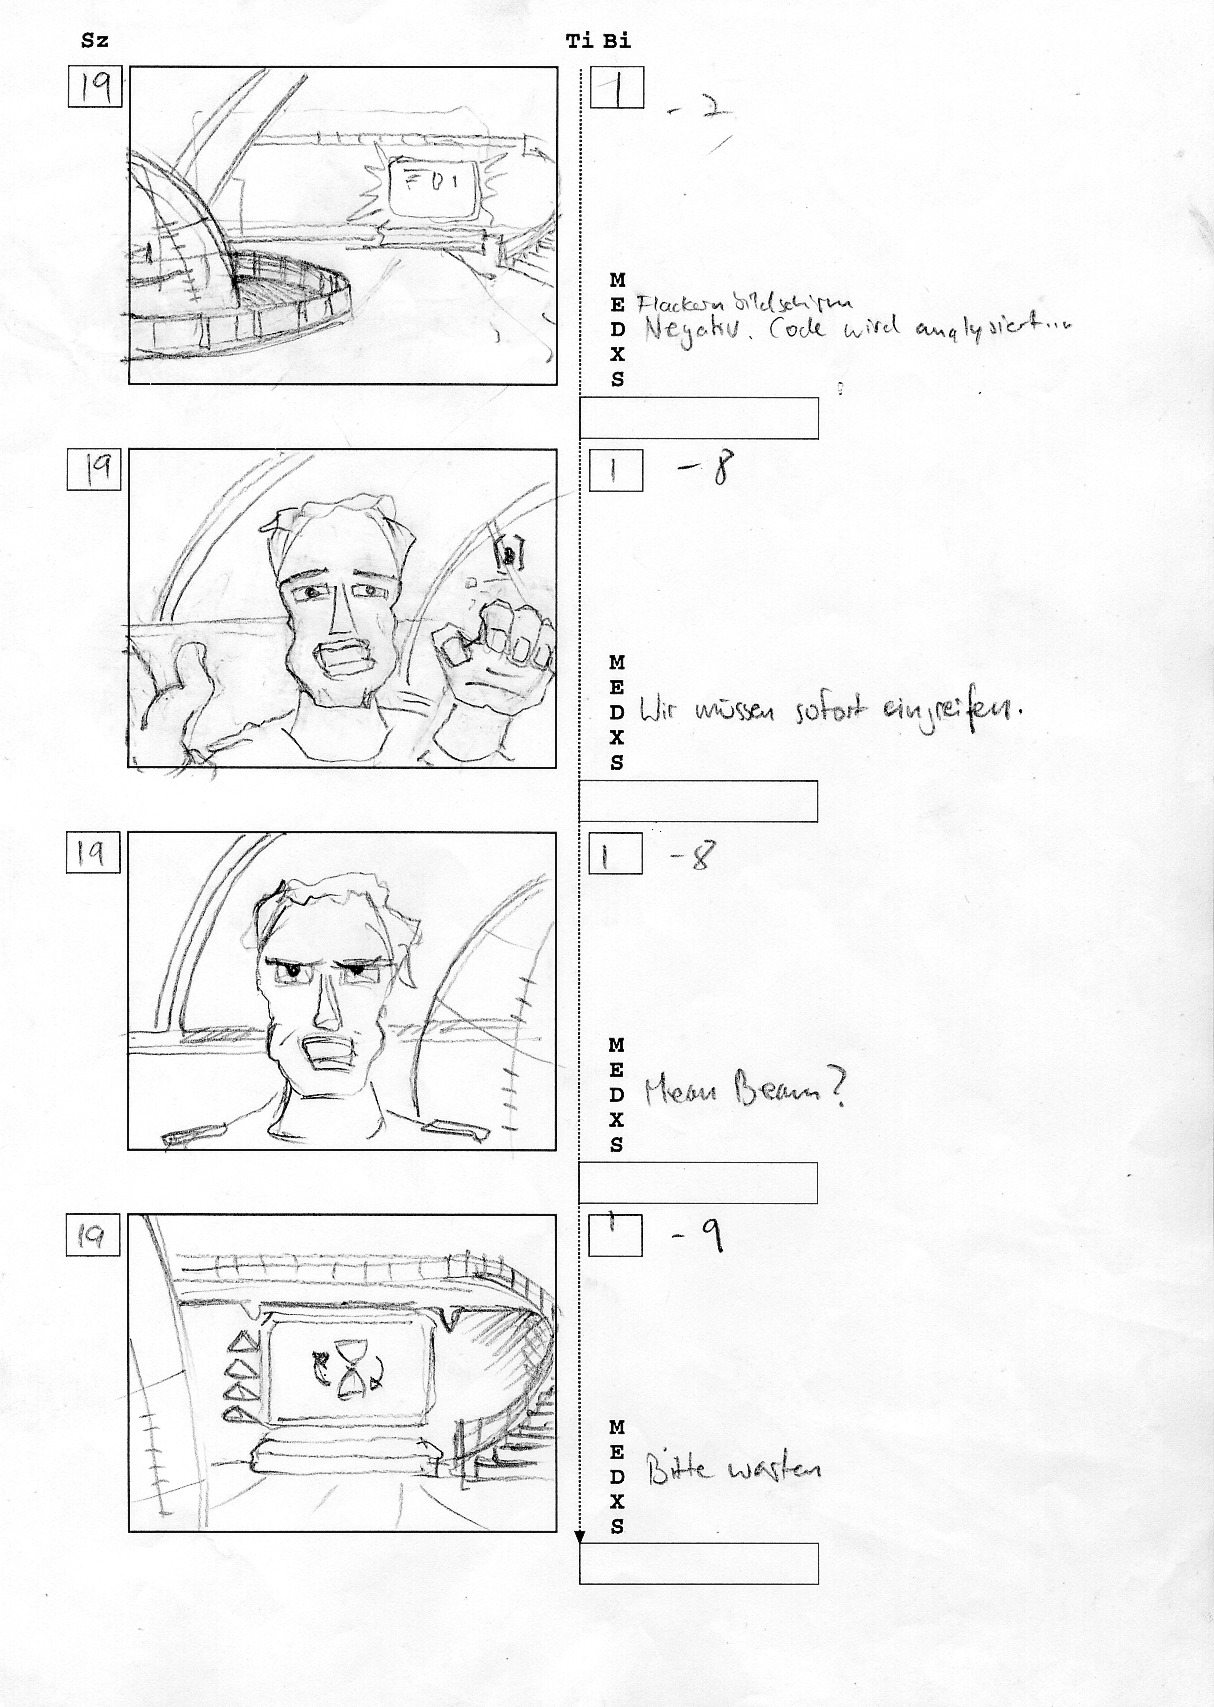 Sz Ti Bi
19 1 - 2
F01
M
E Flackern bildschirm
D Negativ. Code wird analysiert...
X
S
19 1 - 8
[B]
M
E
D Wir müssen sofort eingreifen.
X
S
19 1 - 8
M
E
D Mean Beam?
X
S
19 1 - 9
M
E
D Bitte warten
X
S